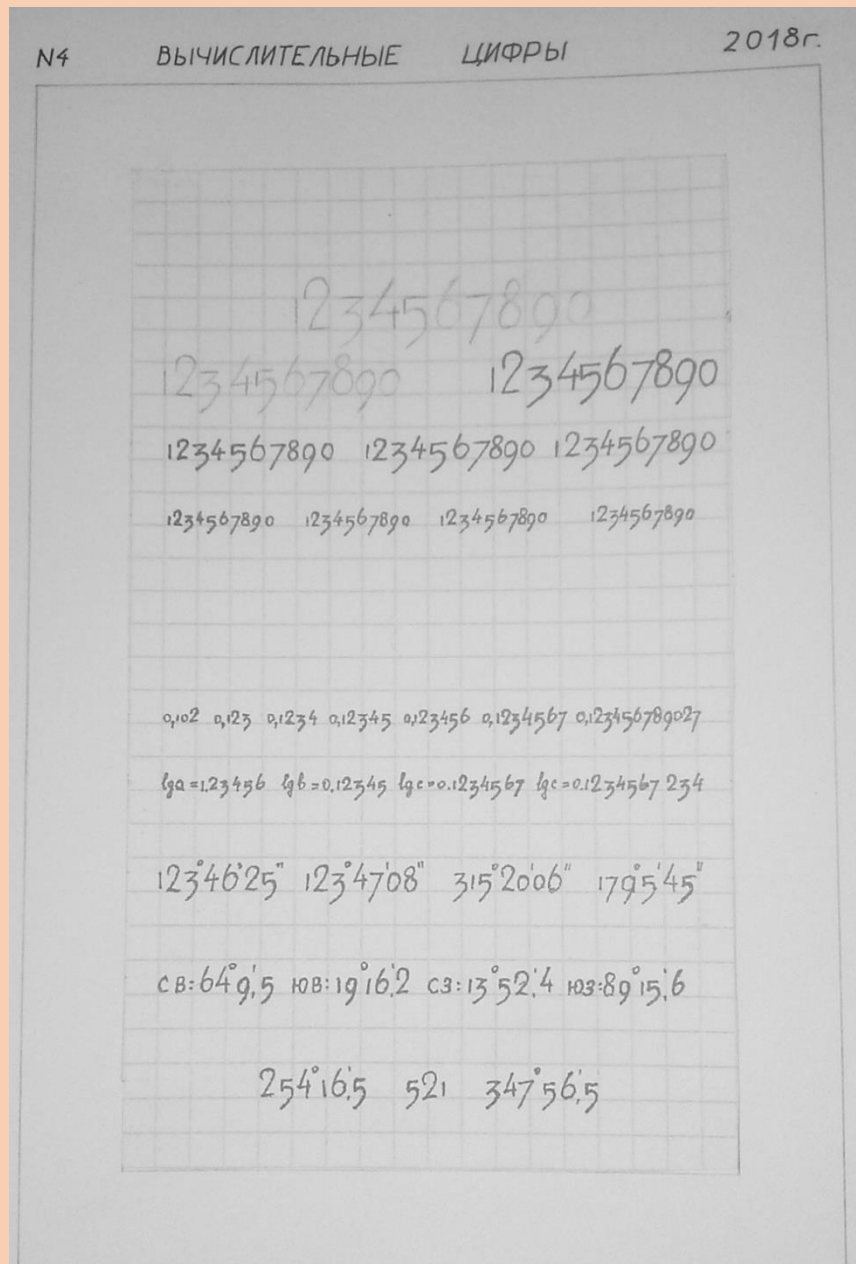 N4 ВЫЧИСЛИТЕЛЬНЫЕ ЦИФРЫ 2018г.
1234567890
1234567890 1234567890
1234567890 1234567890 1234567890
1234567890 1234567890 1234567890 1234567890
0,102 0,123 0,1234 0,12345 0,123456 0,1234567 0,123456789027
lga=1.23456 lgb=0.12345 lgc=0.1234567 lgc=0.1234567234
123°46'25" 123°47'08" 315°20'06" 179°5'45"
СВ:64°9,'5 ЮВ:19°16,'2 СЗ:13°52,'4 ЮЗ:89°15,'6
254°16,'5 521 347°56,'5